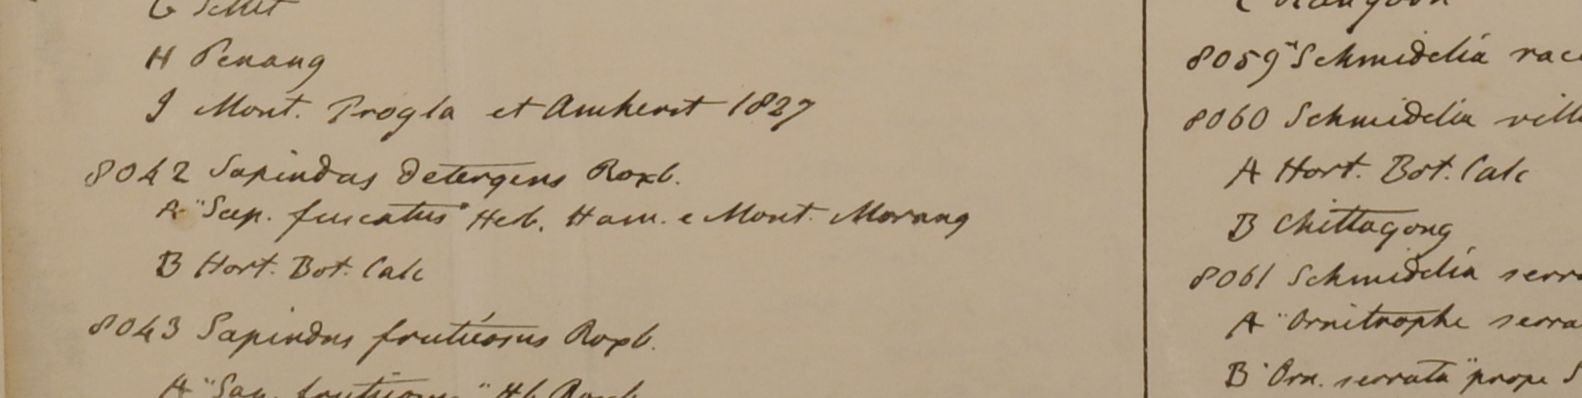 G Silhet
H Penang
J Mont. Progla et Amherst 1827
8042 Sapindus detergens Roxb.
A "Sap. fuscatus" Herb. Ham. e Mont. Morang
B Hort. Bot. Calc
8043 Sapindus fruticosus Roxb.
A "Sap. fruticosus" Hb. Roxb.
C Rangoon
8059 "Schmidelia race
8060 Schmidelia vill
A Hort. Bot. Calc
B Chittagong
8061 Schmidelia serra
A "Ornitrophe serra
B "Orn. serrata" prope S